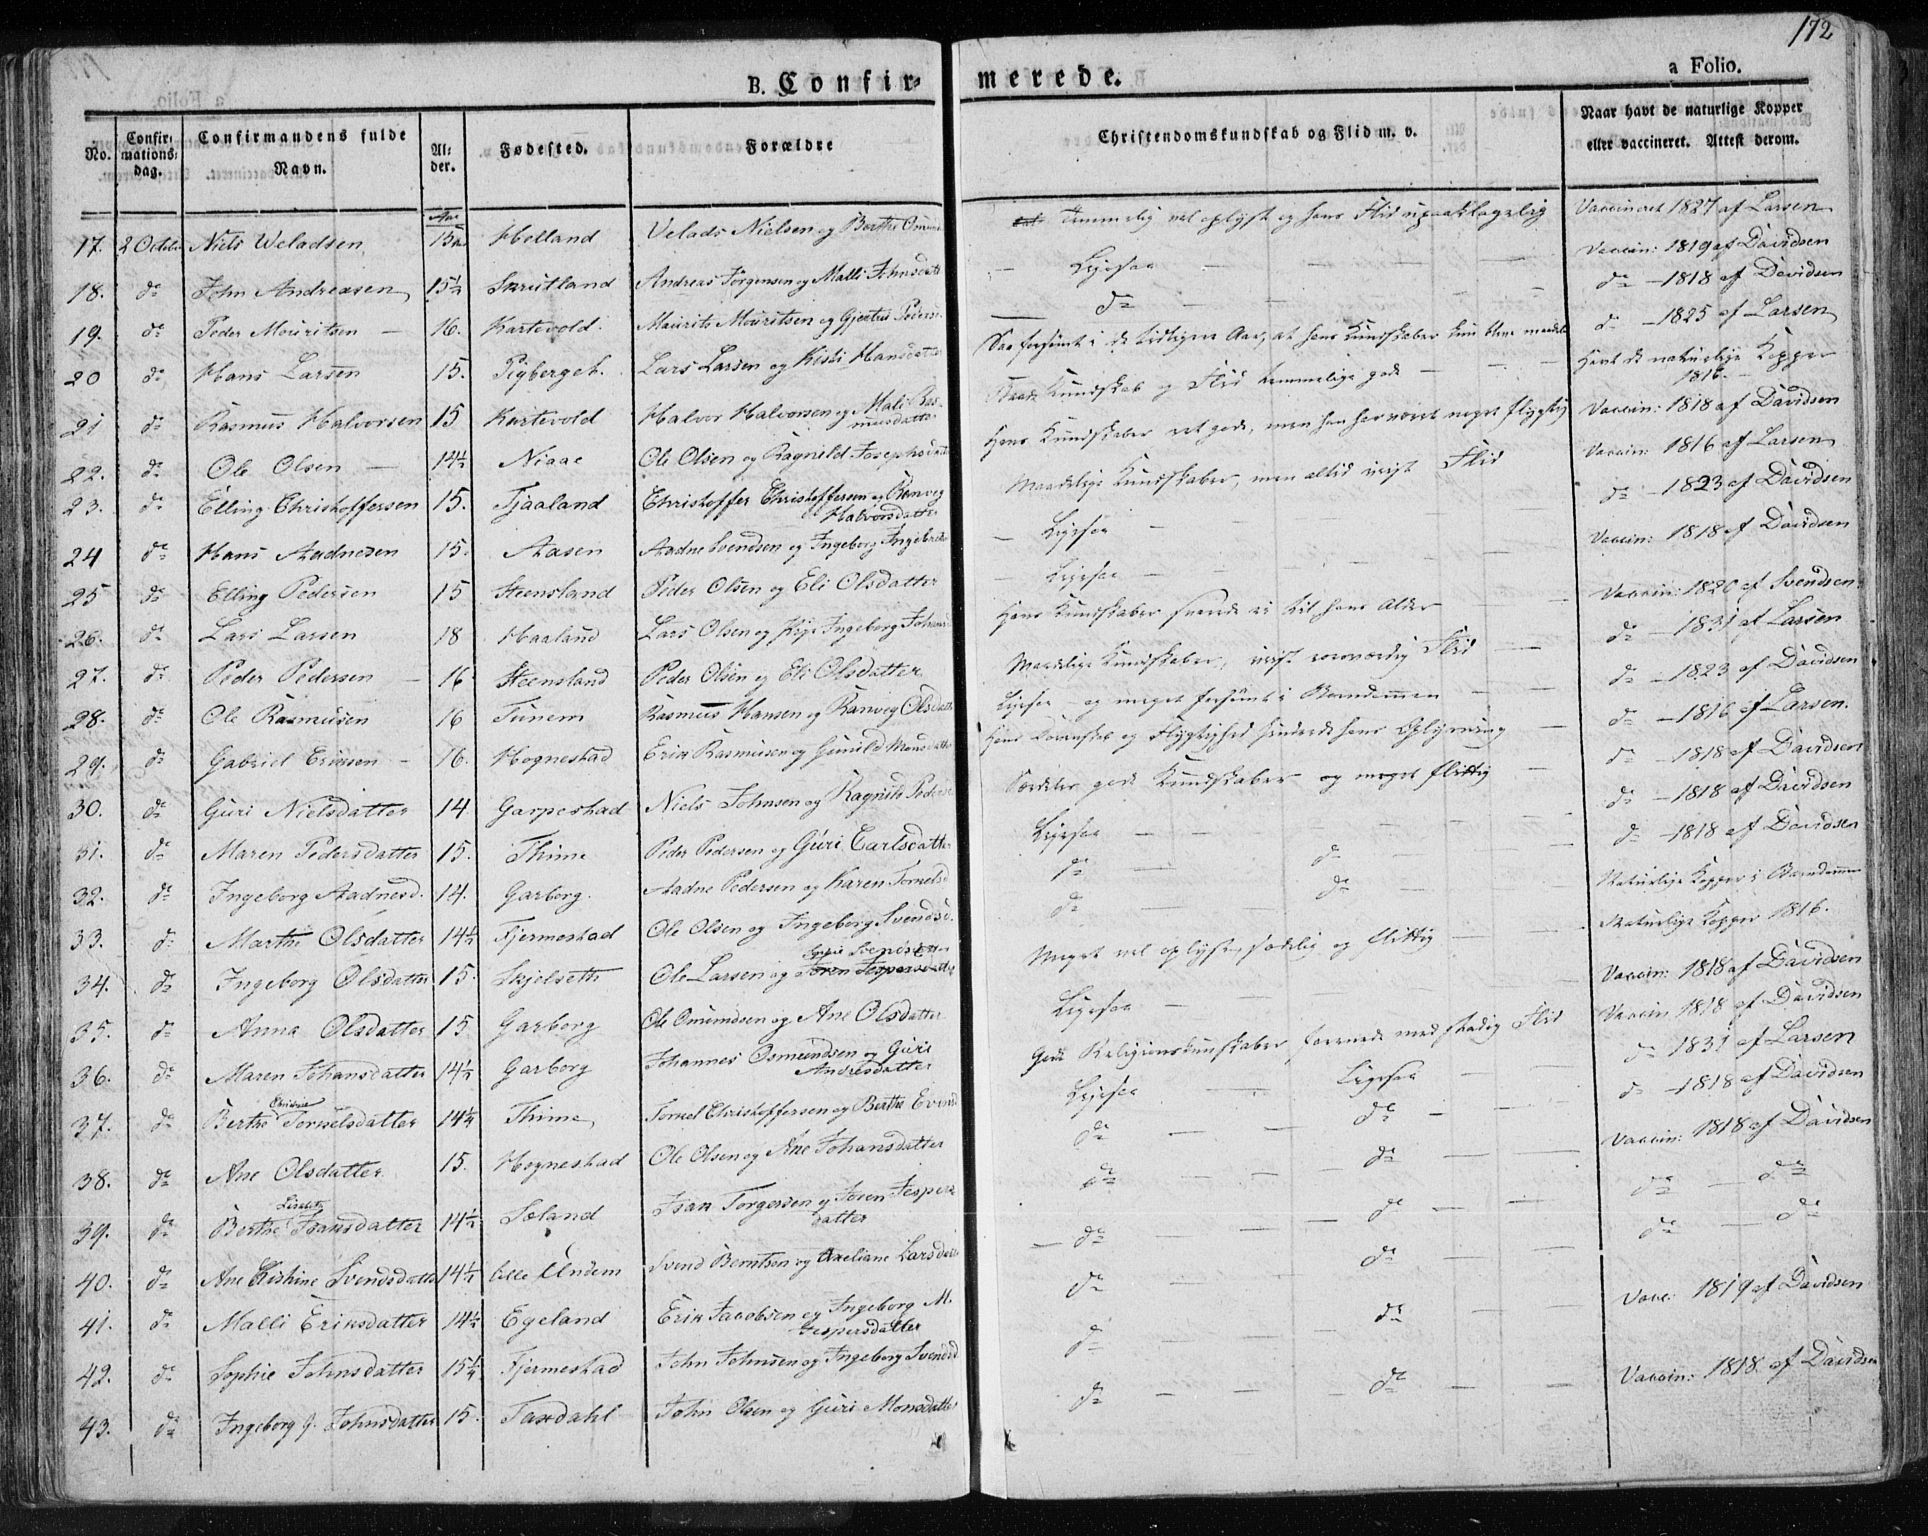 172
B. Confir- merede. a Folio.
No. Confir-mations-dag. Confirmandens fulde Navn. Al-der. Fødested. Forældre Christendomskundskab og Flid m. v. Naar havt de naturlige Kopper eller vaccineret. Attest derom.
17. 2 Octobr Niels Weladsen Helland Velads Nielsen og Berthe temmelig vel oplyst og hans Flid upaaklagelig Vaccineret 1827 af Larsen
18. do John Andreasen 15½ Skrutland Andreas Torgensen og Malli Johnsdatt — Ligesaa — Vaccin: 1819 af Davidsen
19. do Peder Mouritsen — 16. Kartevold. Maurits Mouritsen og do do — 1818 af Davidsen
20 do Hans Larsen 15. Lars Larsen og Kisti Hansdatter forsømt i de tidligere Aar, at hans Kundskaber kun blev do — 1825 af Larsen
21 do Rasmus Halvorsen 15 Kartevold Halvor Halvorsen og Mali Ras-musdatter Kundskab og Flid temmelig gode Havt de naturlige Kopper 1816.
22. do Ole Olsen — 14½ Niaae Ole Olsen og Ragnild Josephsdatter Hans Kundskaber ret gode, men han har været meget flygtig Vaccin: 1818 af Davidsen
23. do Elling Christoffersen 15. Tjaaland Christoffer Christoffersen og Ranveg Halvorsdatter Maadelige Kundskaber, men altid Flid Vaccin: 1816 af Larsen
24 do Hans Aadnesen 15. Aasen Aadne Svendsen og Ingeborg — Ligesaa — do — 1823 af Davidsen
25 do Elling Pedersen 15 Steensland Peder Olsen og Eli Olsdatter — Ligesaa — Vaccin: 1818 af Davidsen
26. do Lars Larsen 18 Haaland Lars Olsen og Ingeborg Hans Kundskaber svarede ei til hans Alder Vaccin: 1820 af Svendsen
27. do Peder Pedersen — 16 Steensland Peder Olsen og Eli Olsdatter Maadelige Kundskaber, Flid do — 1831 af Larsen
28. do Ole Rasmusen 16 Tunem Rasmus Hansen og Ranveg Olsdatt Ligesaa — og meget forsømt i Barndommen do — 1823 af Davidsen
29. do Gabriel Eriksen — 16. Hognestad Erik Rasmusen og Gunild Monsdatter Hans Dovenskab og Flygtighed hindrede hans Oplysning do — 1816 af Larsen.
30. do Guri Nielsdatter 14 Garpestad Niels Johnsen og Ragnild Særdeles gode Kundskaber og meget flittig do — 1818 af Davidsen
31. do Maren Pedersdatter 15. Thime Peder Pedersen og Guri Carlsdatter Ligesaa — do — 1818 af Davidsen
32. do Ingeborg Aadnesd. 14. Garborg. Aadne Pedersen og Karen Tornelsd do do do — 1818 af Davidsen
33. do Marthe Olsdatter 14½ Fjermestad Ole Olsen og Ingeborg Svendsd. do do Naturlige Kopper i Barndommen
34. do Ingeborg Olsdatter 15. Skjelseth Ole Larsen og Meget vel oplyst, sædelig og flittig Naturlige Kopper 1816.
35. do Anna Olsdatter 15 Garborg Ole Omundsen og Ane Olsdatter Ligesaa Vaccin: 1818 af Davidsen
36. do Maren Johansdatter 14½ Garborg Johannes Osmundsen og Guri Andresdatter Gode Religionskundskaber, forenede med stadig Flid Vaccin 1818 af Davidsen
37. do Berthe Tornelsdatter 14¼ Thime Tornel Christoffersen og Berthe Ligesaa Ligesaa do 1831 af Larsen
38. do Ane Olsdatter 15. Hogneshad Ole Olsen og Ane Johansdatter do do do — 1818 af Davidsen
39. do Berthe Isaksdatter 14½ Soland Isak Torgersen og Soren Jespers datter do do Vaccin: 1818 af Davidsen
40. do Ane Kistine Svendsdatter 14½ Lille Undem Svend Berntsen og Axeliane Larsdatt do do do — do
41. do Malli Eriksdatter 14½ Egeland Erik Jacobsen og Ingeborg M. Jespersdatter do do do — do
42. do Sophie Johnsdatter 15¼ Fjermestad John Johnsen og Ingeborg Svendsd do do Vacc: 1819 af Davidsen
43. do Ingeborg J. Johnsdatter 15. Taxdahl John Olsen og Guri Monsdatter do do Vaccin: 1818. af Davidsen